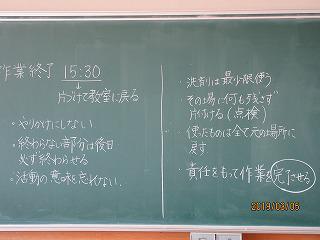 作業終了 15:30
↓
片づけて教室に戻る
・やりかけにしない
・終わらない部分は後日
必ず終わらせる
・活動の意味を忘れない。
・洗剤は最小限使う
・その場に何も残さず
片付ける(点検)
・使ったものは全て元の場所に
戻す
・責任をもって作業を完了させる
2019/03/05